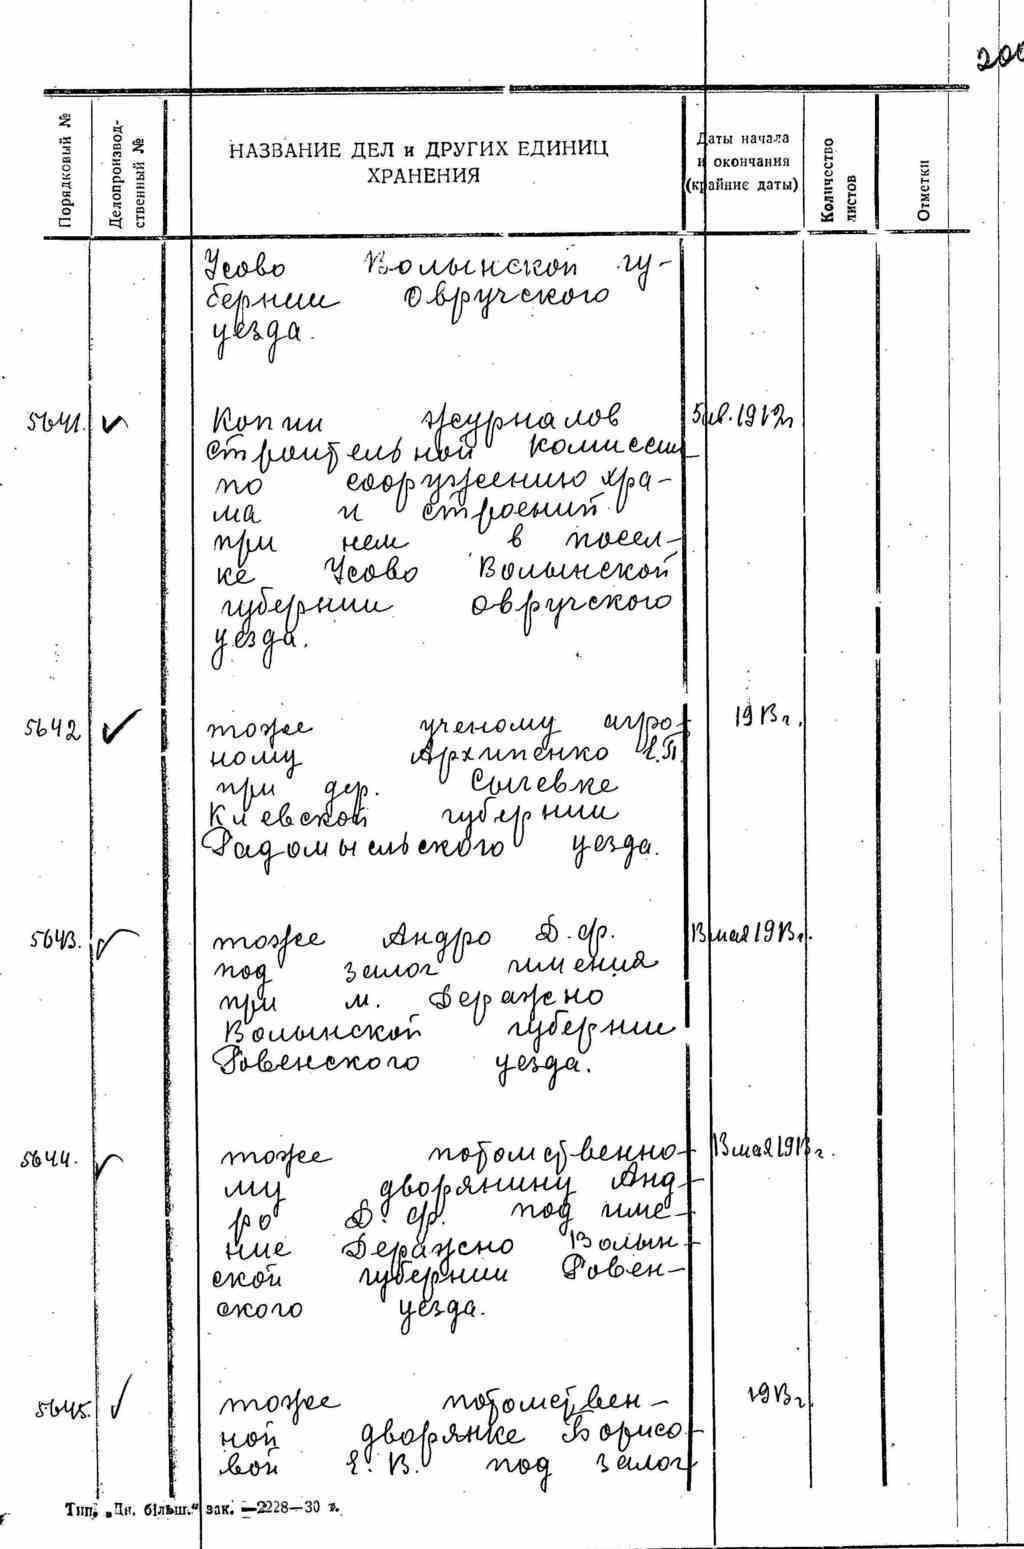 200
Порядковый №
Делопроизвод-
ственный №
НАЗВАНИЕ ДЕЛ и ДРУГИХ ЕДИНИЦ
ХРАНЕНИЯ
Даты начала
и окончания
(крайние даты)
Количество
листов
Отметки
Усово Волынской гу-
бернии Овручского
уезда.
5641. Копии журналов 5 1912г
строительной комиссии
по сооружению хра-
ма и строений
при нем в посел-
ке Усово Волынской
губернии Овручского
уезда.
5642 тоже ученому агро- 1913 г.
ному Архипенко Е.П.
при дер. Сычевке
Киевской губернии
Радомысльского уезда.
5643. тоже Андро Д. Ф. 13 мая 1913 г.
под залог имения
при м. Деражно
Волынской губернии
Ровенского уезда.
5644. тоже потомственно- 13 мая 1913 г.
му дворянину Анд-
ро Д. Ф. под име-
ние Деражно Волын-
ской губернии Ровен-
ского уезда.
5645. тоже потомствен- 1913 г.
ной дворянке Борисо-
вой Е. В. под залог
Тип. „Дн. більш.“ зак. —2228—30 г.